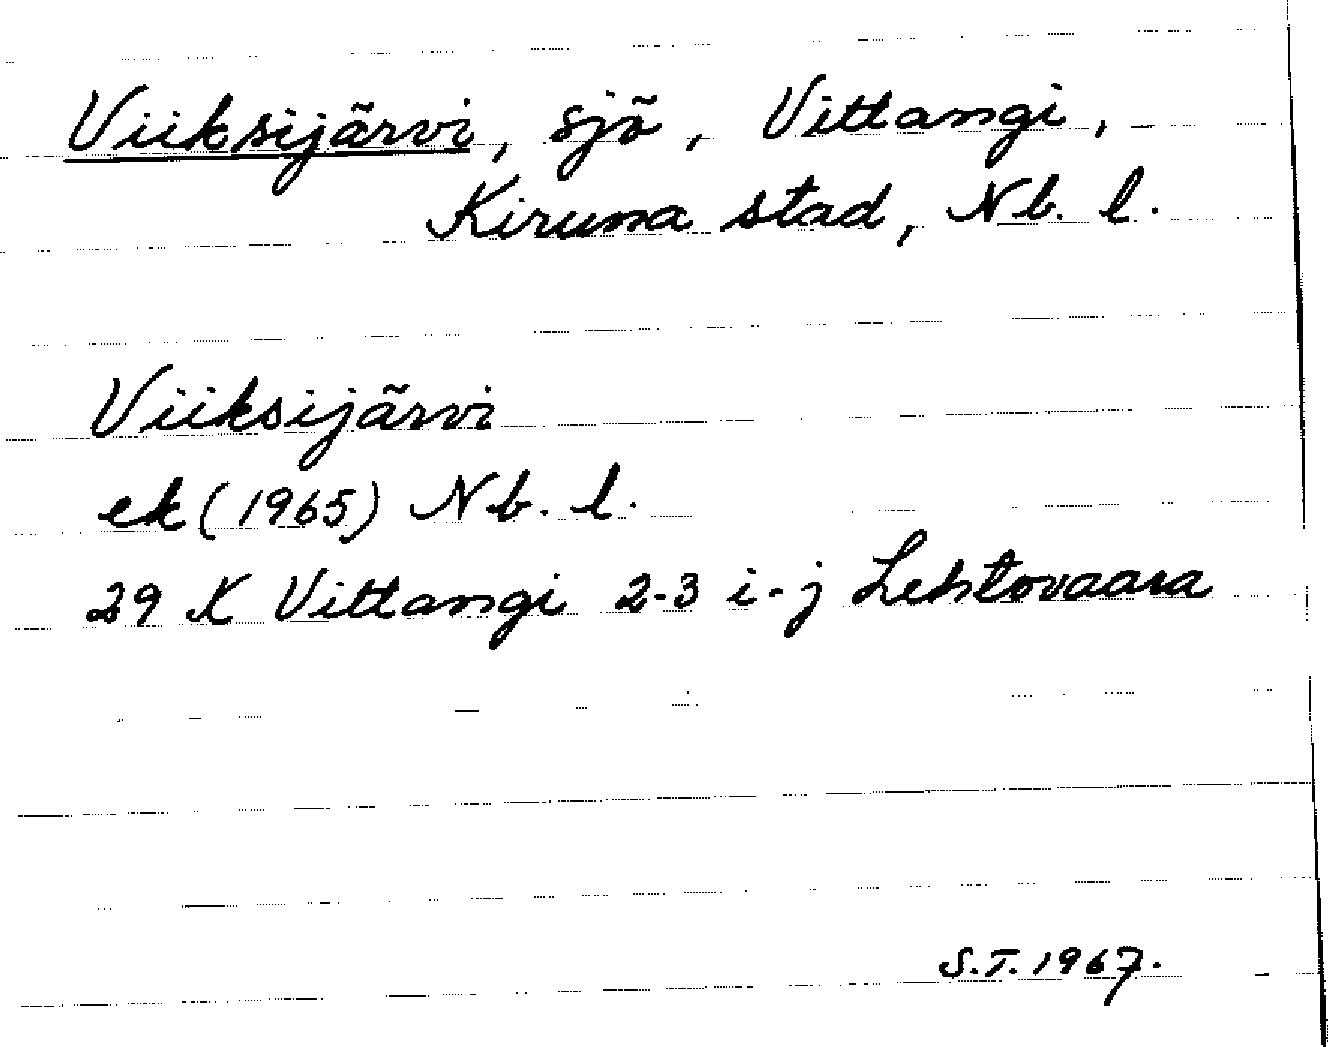 Viiksijärvi, sjö, Vittangi,
Kiruna stad, Nb. l.
Viiksijärvi
ek (1965) Nb. l.
29 K Vittangi 2-3 i-j Lehtovaara
S.T. 1967.